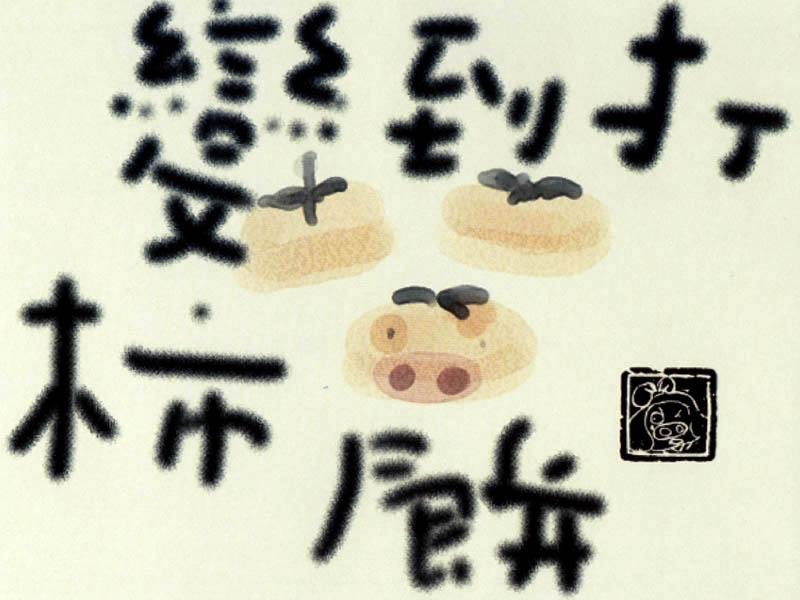 打到變
柿餅